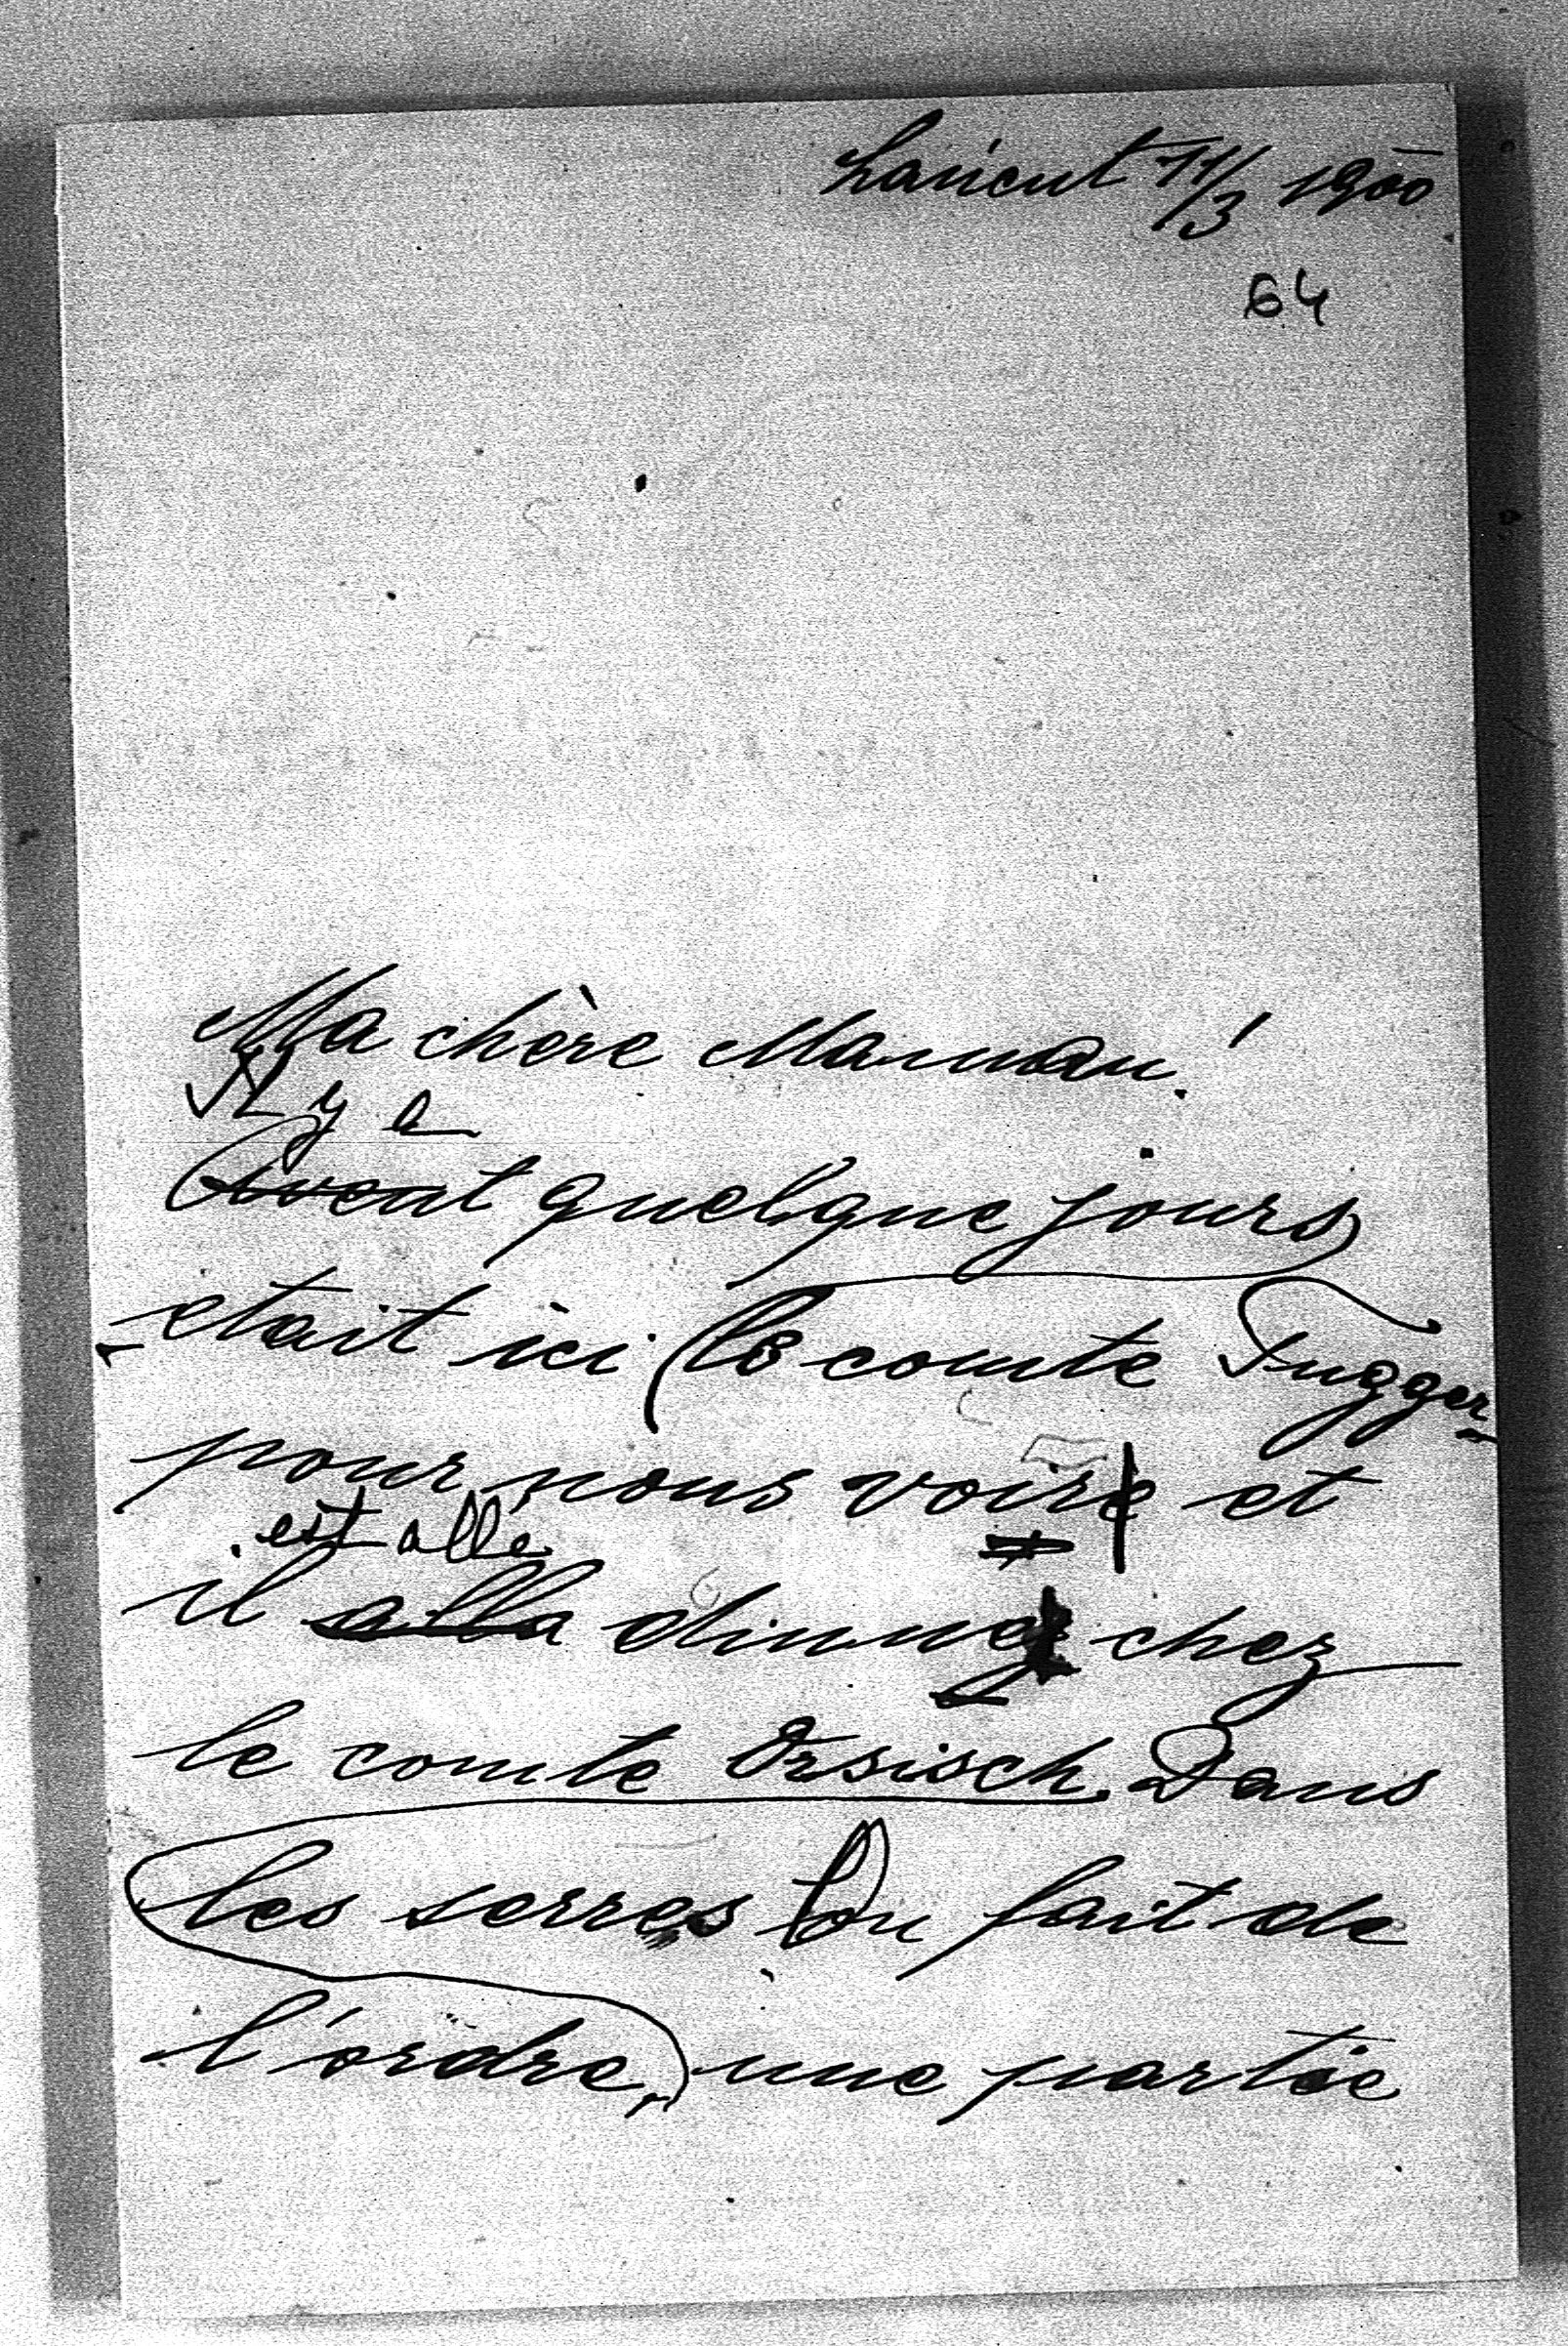 Łańcut 11/3 1900
64
Ma chère Maman!
Il y a
Avent quelque jours
etait ici le comte Fugger
pour nous voire et
est allé
il alla dinner chez
le comte Orsisch. Dans
les serres on fait de
l'ordre, une partie